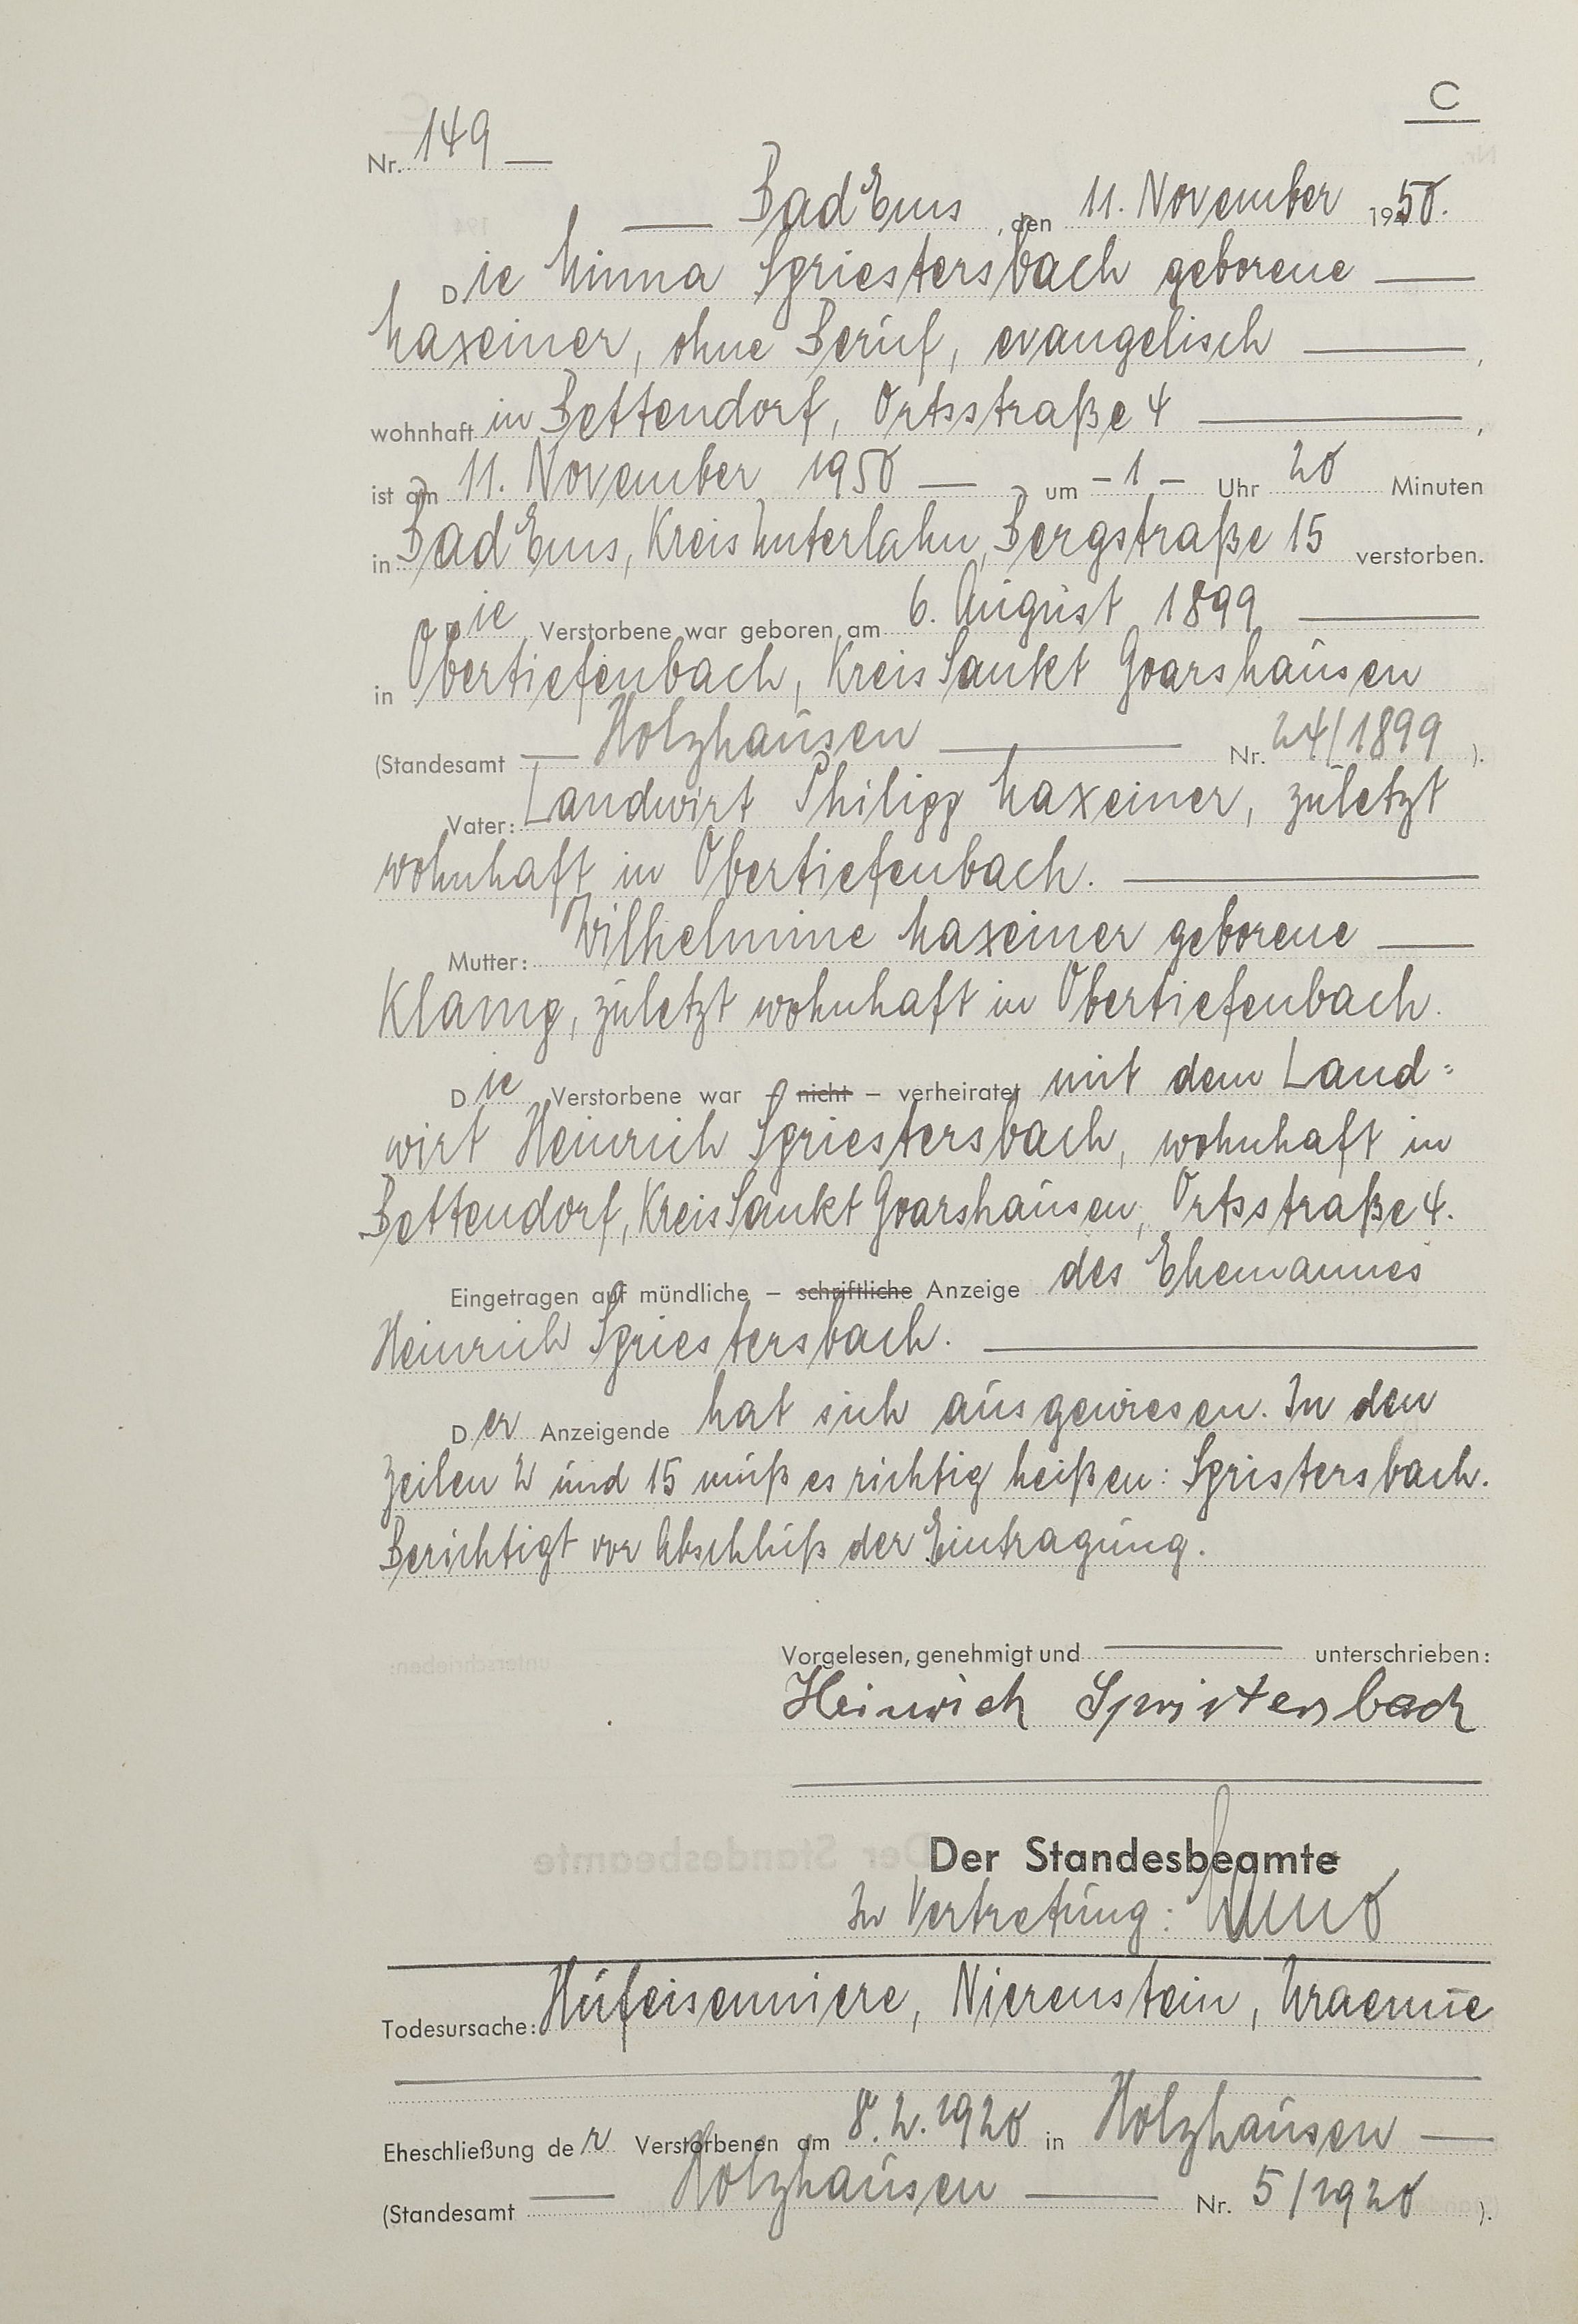 C
Nr. 149
Bad Ems, den 11. November 1950.
Die Minna Spriestersbach geborene
Maxeiner, ohne Beruf, evangelisch,
wohnhaft in Bettendorf, Ortsstraße 4,
ist am 11. November 1950 um - 1 - Uhr 20 Minuten
in Bad Ems, Kreis Unterlahn, Bergstraße 15 verstorben.
Die Verstorbene war geboren am 6. August 1899
in Obertiefenbach, Kreis Sankt Goarshausen
(Standesamt Holzhausen Nr. 24/1899).
Vater: Landwirt Philipp Maxeiner, zuletzt
wohnhaft in Obertiefenbach.
Mutter: Wilhelmine Maxeiner geborene
Klamp, zuletzt wohnhaft in Obertiefenbach.
Die Verstorbene war – nicht – verheiratet mit dem Land=
wirt Heinrich Spriestersbach, wohnhaft in
Bettendorf, Kreis Sankt Goarshausen, Ortsstraße 4.
Eingetragen auf mündliche – schriftliche Anzeige des Ehemannes
Heinrich Spriestersbach.
Der Anzeigende hat sich ausgewiesen. In den
Zeilen 2 und 15 muß es richtig heißen: Spristersbach.
Berichtigt vor Abschluß der Eintragung.
Vorgelesen, genehmigt und unterschrieben:
Heinrich Spristersbach
Der Standesbeamte
In Vertretung:
Todesursache: Hufeisenniere, Nierenstein, Uraemie
Eheschließung der Verstorbenen am 8.2.1920 in Holzhausen
(Standesamt Holzhausen Nr. 5/1920).